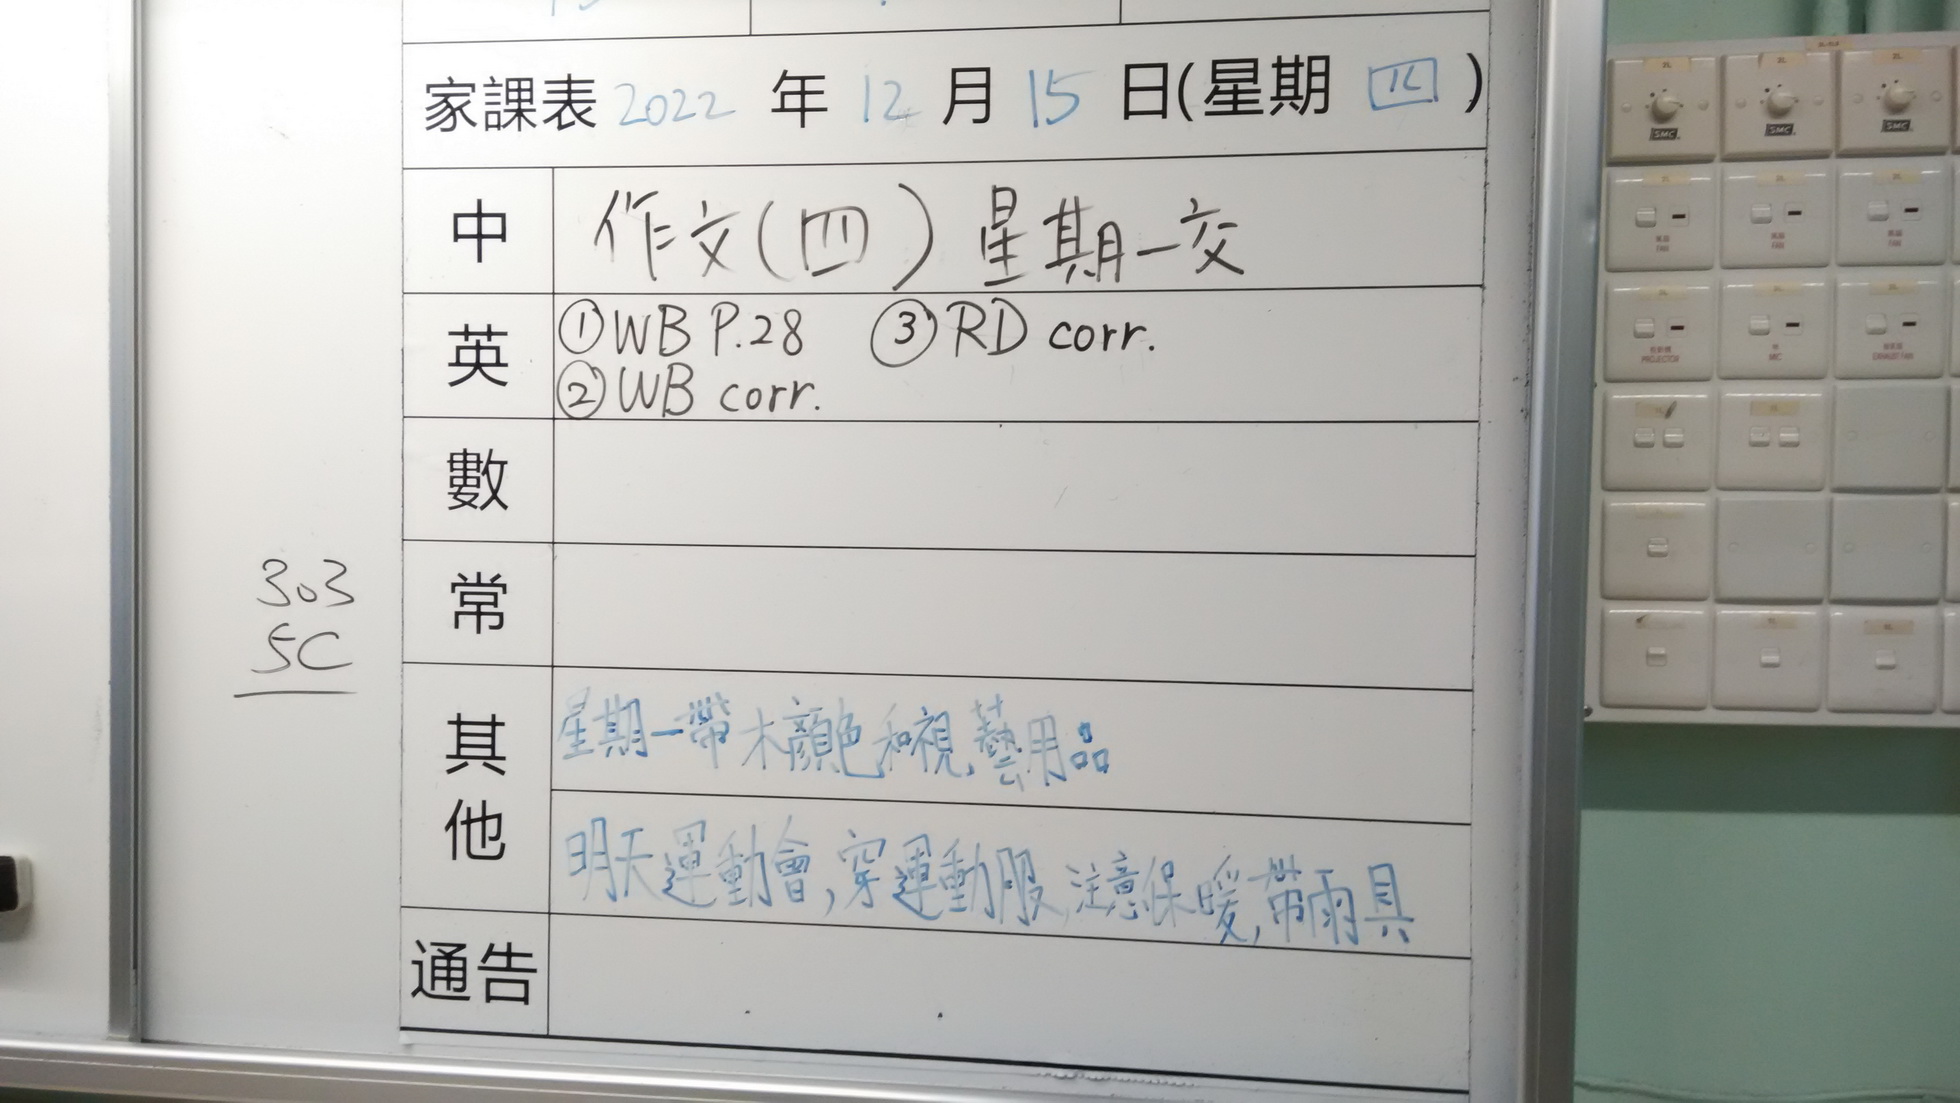 家課表 2022 年 12 月 15 日(星期 四)
中 作文(四) 星期一交
英 ①WB P.28 ③RD corr.
②WB corr.
數
常
303
5C
其他 星期一帶木顏色和視藝用品
明天運動會,穿運動服,注意保暖,帶雨具
通告
SMC SMC SMC
FAN FAN FAN
PROJECTOR MIC EXHAUST FAN